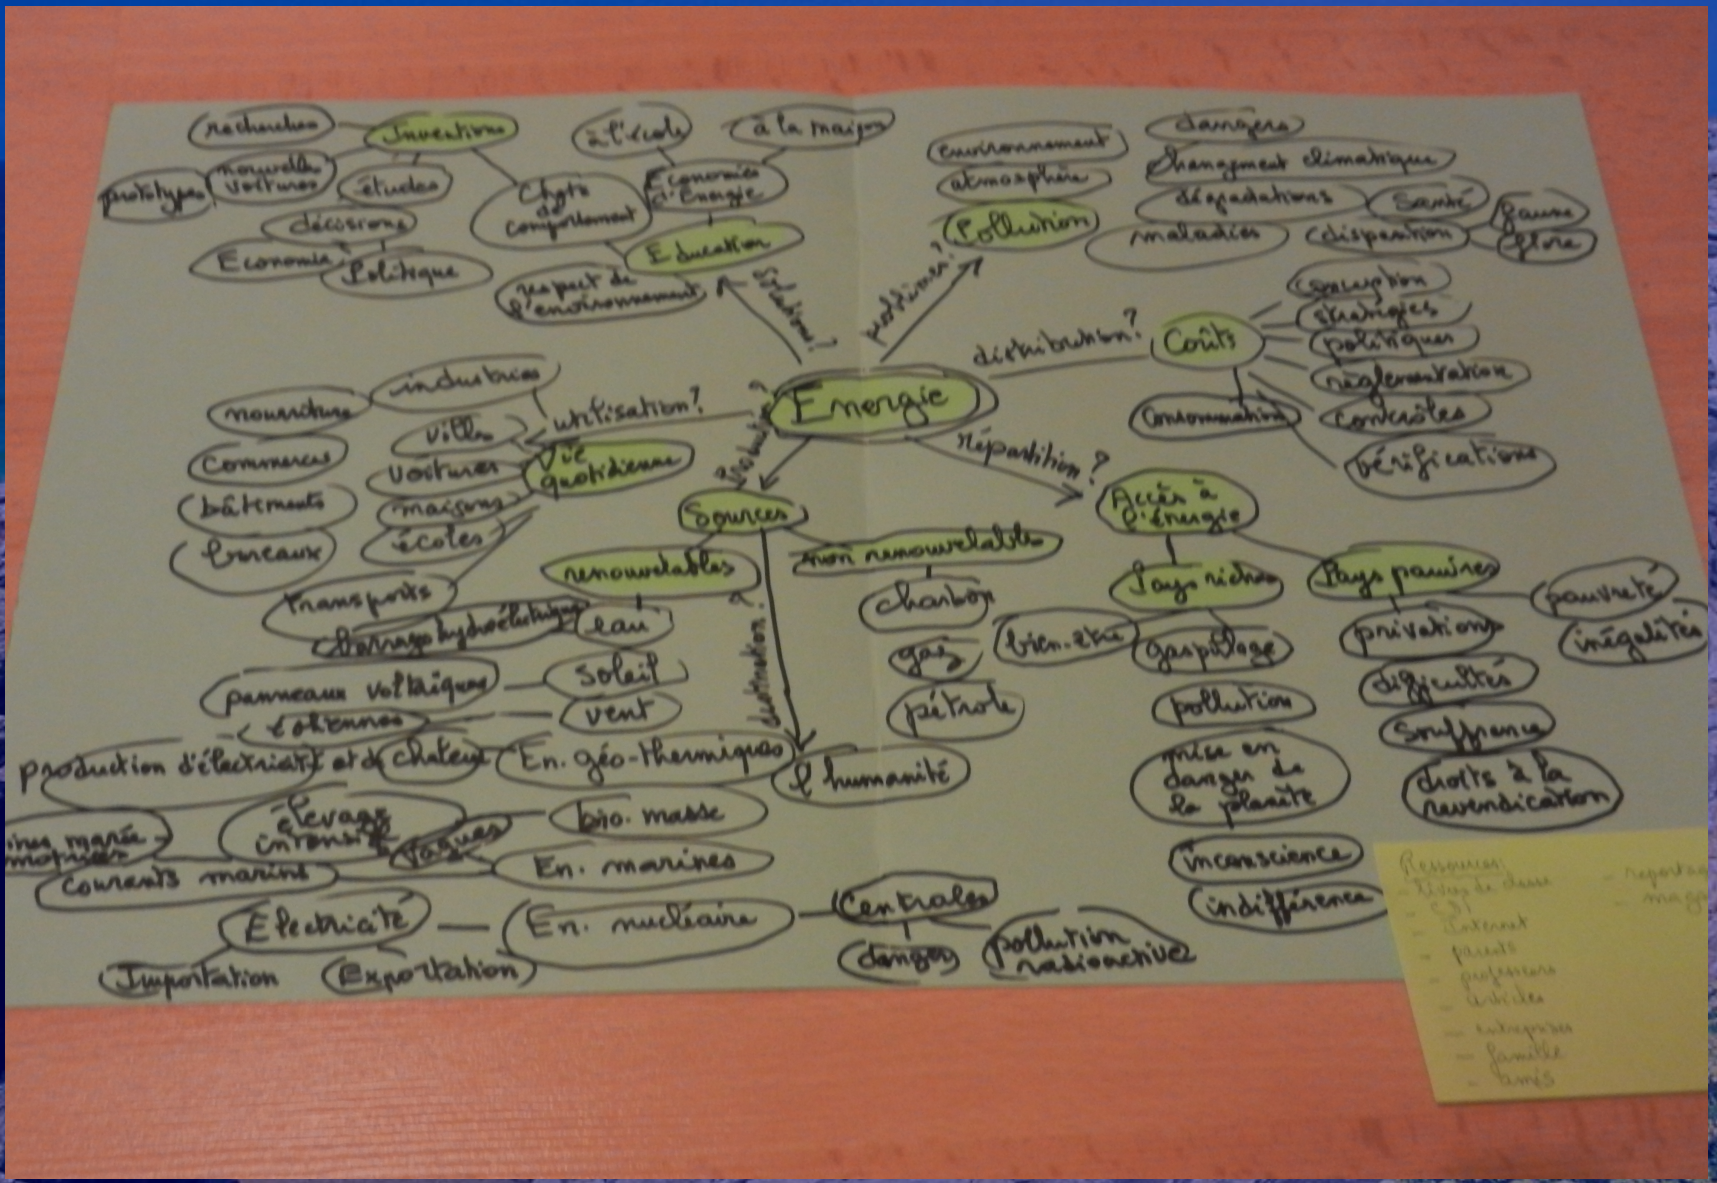 recherches
Inventions
à l'école
à la maison
prototypes
nouvelles
voitures
études
Chgts
de
comportement
Economies
d'Énergie
décisions
Economie
Politique
Education
respect de
l'environnement
Solutions?
problèmes?
environnement
atmosphère
Pollution
dangers
changement climatique
dégradations
Santé
maladies
disparition
faune
flore
Energie
distribution?
Coûts
conception
stratégies
politiques
règlementation
contrôles
vérifications
Consommation
utilisation?
industries
nourriture
villes
commerces
voitures
Vie
quotidienne
bâtements
maisons
bureaux
écoles
transports
Production?
Sources
renouvelables
non renouvelables
barrage hydroélectrique
eau
panneaux voltaïques
soleil
éoliennes
vent
production d'électricité et de chaleur
En. géo-thermiques
élevage
intensif
bio. masse
marée
motrices
vagues
courants marins
En. marines
Electricité
En. nucléaire
Importation
Exportation
Centrales
danger
pollution
radioactive
charbon
gaz
pétrole
destination?
l'humanité
répartition?
Accès à
l'énergie
Pays riches
bien-être
gaspillage
pollution
mise en
danger de
la planète
inconscience
indifférence
Pays pauvres
pauvreté
inégalités
privations
difficultés
Souffrance
droits à la
revendication
Ressources:
- livres de classe
- CDI
- Internet
- parents
- professeurs
- articles
- entreprises
- famille
- amis